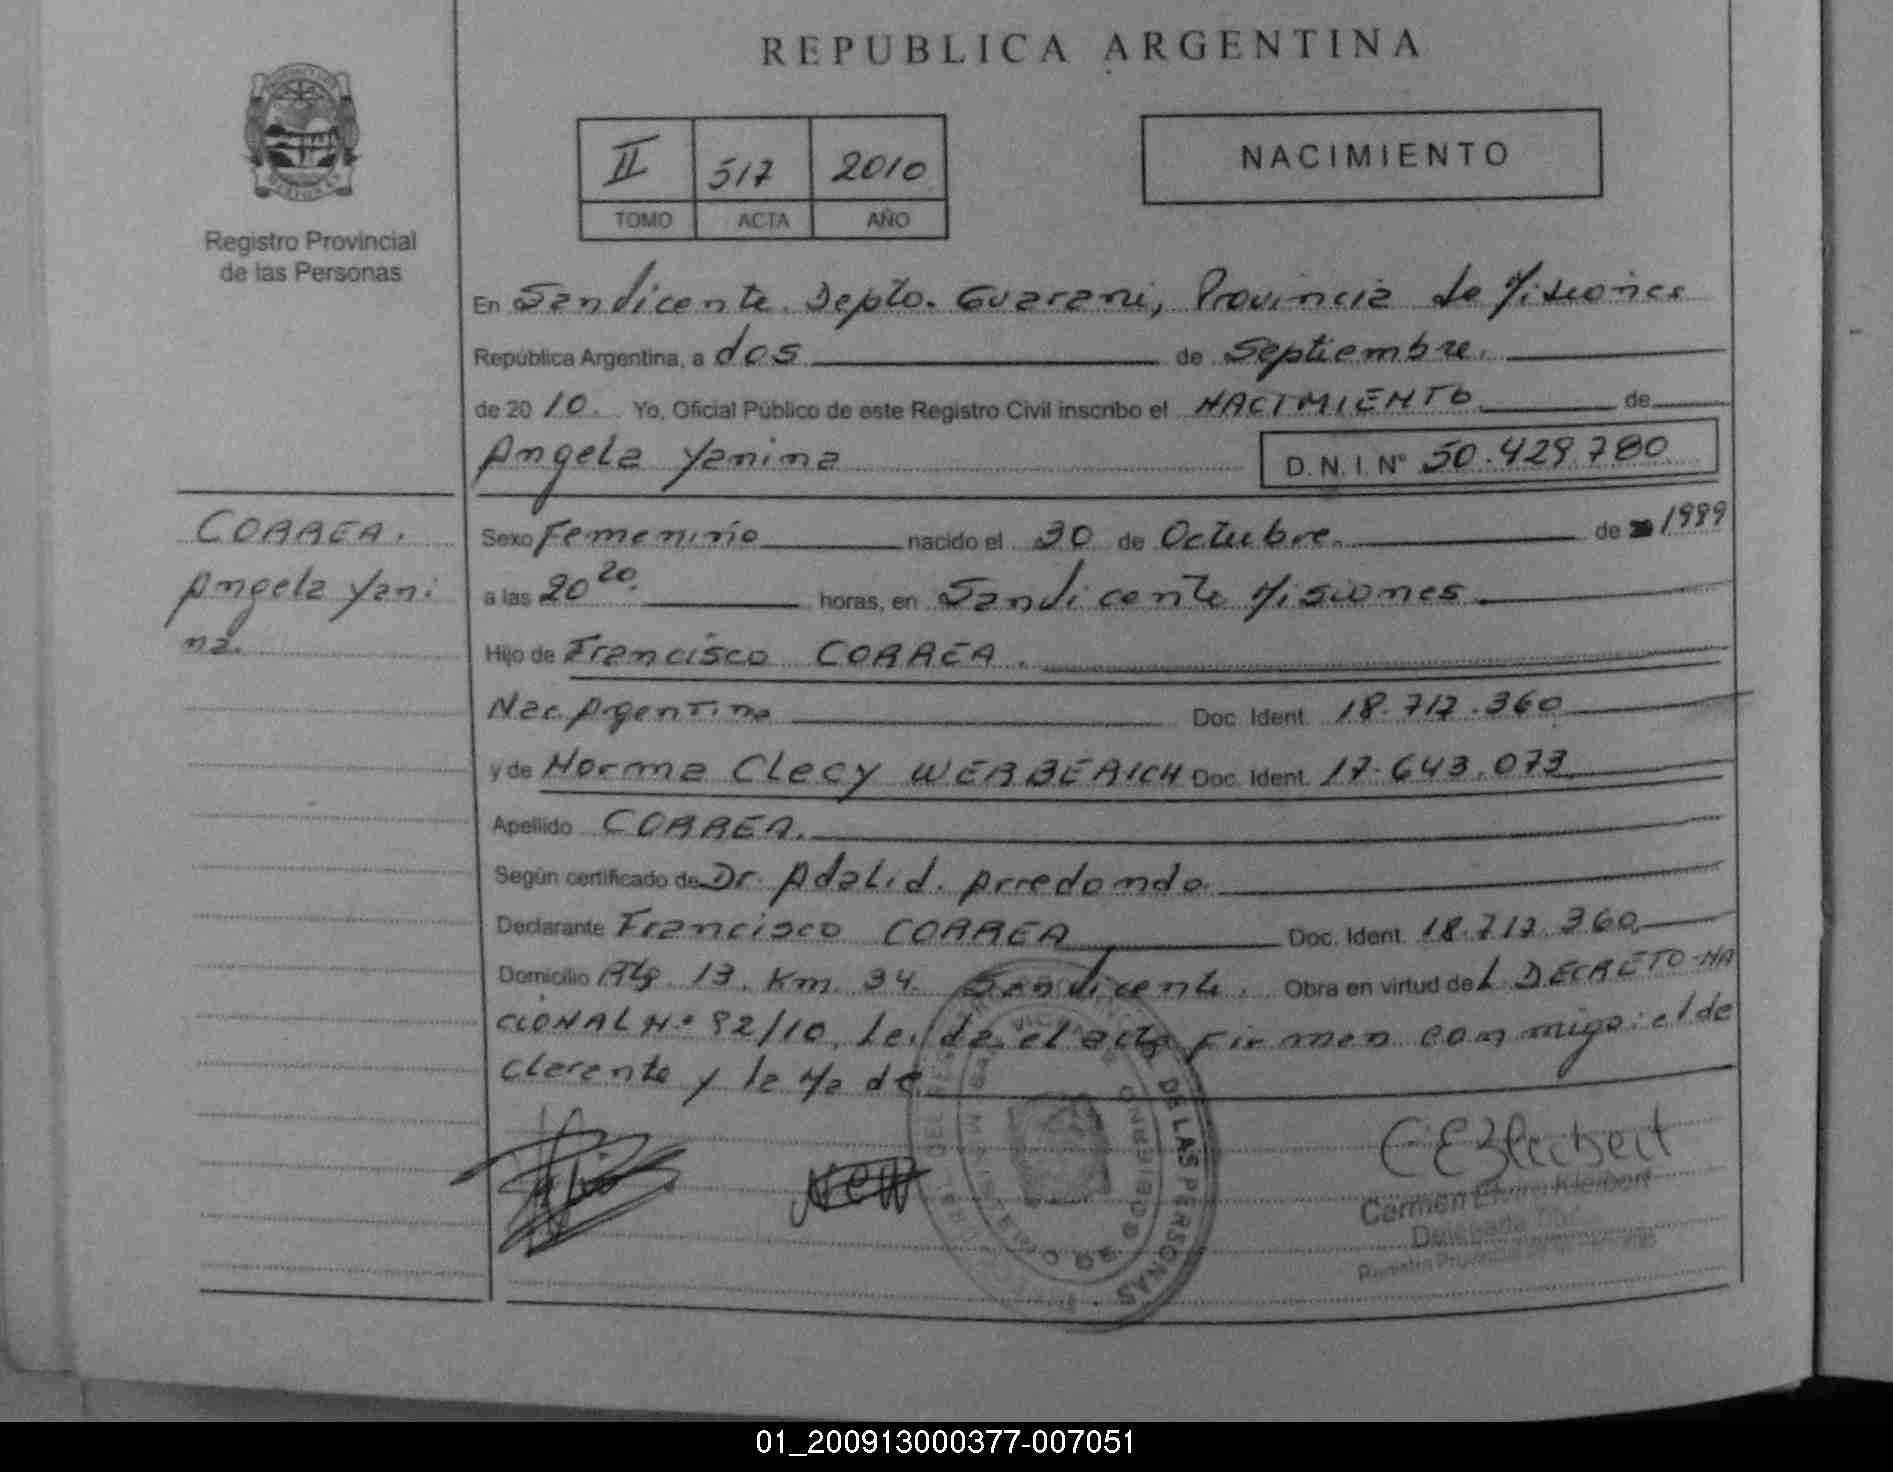 REPUBLICA ARGENTINA
Registro Provincial
de las Personas
II 517 2010
TOMO ACTA AÑO
NACIMIENTO
En Sanvicente. Depto. Guarani, Provincia de Misiones
República Argentina, a dos de Septiembre.
de 20 10. Yo, Oficial Público de este Registro Civil inscribo el NACIMIENTO de
Angela Yanina D. N. I. Nº 50.429.780
CORREA.
Angela Yani
na.
Sexo Femenino nacido el 30 de Octubre. de 1999
a las 20 20. horas, en Sanvicente Misiones
Hijo de Francisco CORREA.
Nac. Argentina Doc. Ident. 18.712.360
y de Norma Clecy WERBERICH Doc. Ident. 17.643.073
Apellido CORREA.
Según certificado de Dr. Adalid. Arredondo.
Declarante Francisco CORREA Doc. Ident. 18.712.360
Domicilio Rta. 13. Km. 34. Sanvicente. Obra en virtud de L DECRETO-NA
CIONAL N° 92/10. Leida el acta Firman conmigo: el de
clarante y la Ma dre
DE LAS PERSONAS
GOBIERNO
Carmen Elvira Kleibert
Delegada
Registro Provincial
01_200913000377-007051